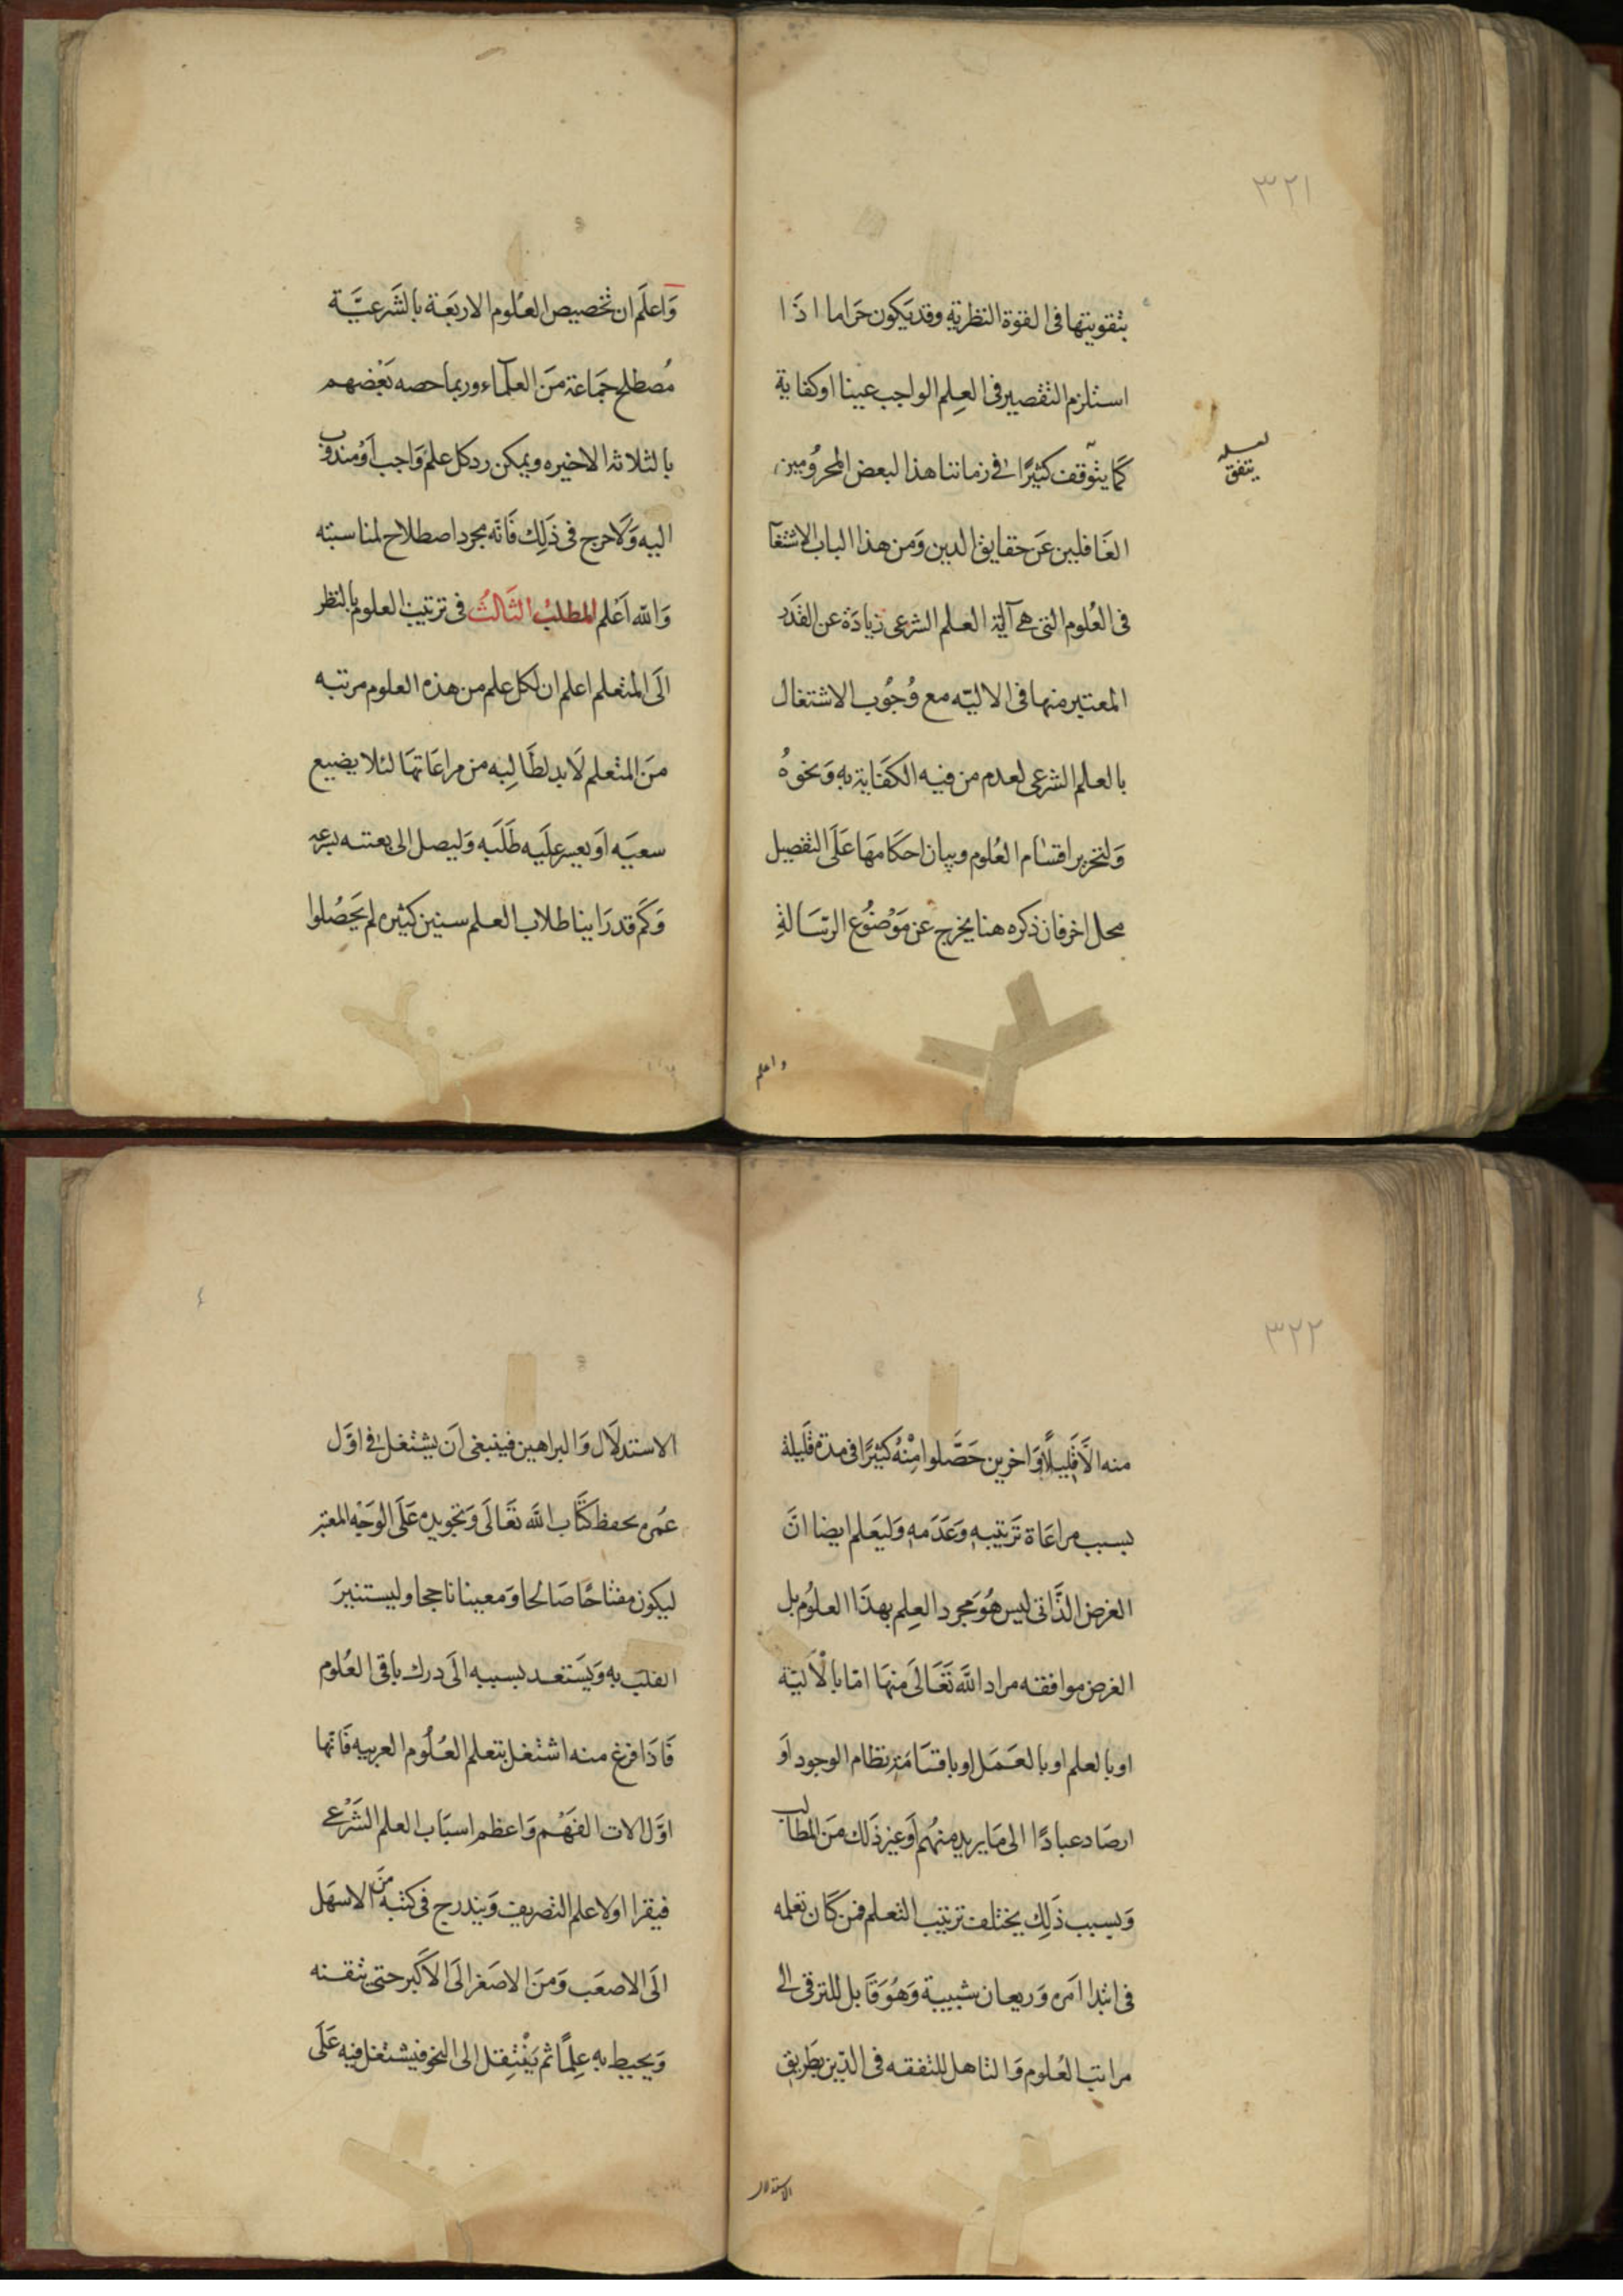 ٣٢١
بتقويتها فى القوة النظرية وقد يَكون حَراما اذَا
استلزم التقصير فى العِلم الواجب عينا او كفاية
كمَا يتوّقف كثيرًا فى زماننا هذا لبعض المحرُومين
لعله
يتفق
الغَافلين عَن حقايق الدين وَمن هذا الباب الاشتغا
فى العُلوم التى هىَ آلية العلم الشرعى زيادَة عن القَدَر
المعتبر منها فى الاليّه مع وُجُوب الاشتغال
بالعلم الشرعى لعدم من فيه الكفَاية به وَنحوهُ
وَلتحرير اقسَام العُلوم وبيان احكامهَا عَلَى التفصيل
محل اخر فان ذكره هنا يخرج عن مَوْضوُع الرسَالةِ
واعلم
وَاعلَم ان تخصيص العُلوم الاربَعَة بالشَرعيَّة
مُصطلح جمَاعة منَ العلمآء وربما خصه بَعْضهم
بالثلاثة الاخيره ويمكن رد كل علم وَاجب اَوْ مندوب
اليه وَلَا حرج فى ذَلِك فَانّه مجرد اصطلاح لمناسبته
وَالله اَعْلم المطلبُ الثَالثُ فى ترتيب العلوم بالنظر
الَى المتعلم اعلم ان لكل علم من هذه العلوم مرتبه
منَ المتعلم لَابد لطَالِبه من مراعَاتهَا لئلا يضيع
سعيَه اَو يعسر علَيه طَلَبَه وَليصل الى بغتته بسرعه
وَكَم قد رَاينا طلاب العلم سنين كثيره لم يَحَصّلوا
٣٢٢
منه الَّا قَليلًا وَاخرين حَصَّلوا مِنْهُ كثيرًا فى مدة قَليلة
بسبب مراعَاة تَرتيبه وَعَدَمه وَليَعلم ايضا انّ
الغرض الذَّاتى ليس هُوَ مجرد العِلم بهذَا العلُوم بل
الغرض موافقه مراد اللَّه تَعَالَى منهَا امّا بالْاليّة
او بالعلم او بالعَمَل او باقسَامَة نظام الوجود اَو
ارصَاد عبادًا الى مَا يريد منهُم اَو غير ذَلك منَ المطالب
وَبسبب ذَلِك يختلف ترتيب التعلم فمن كَان تعلمه
فى ابتدا امَره وَريعان شبيبة وَهُوَ قَابل للترقى الى
مراتب العُلوم وَالتاهل للتفقه فى الدّين بطَريق
الاستدلال
الاستدلَال وَالبراهين فينبغى اَن يشتغل فى اوَّل
عُمره بحفظ كتَّاب اللَّه تعَالَى وَتجويده عَلَى الوَجْه المعتبر
ليكون مفتاحًا صَالحا وَمعينا ناجحا وليستنيرَ
القلبَ به وَيَستَعد بسببه الَى درك بَاقى العُلوم
فَادَا فرغ منه اشتغل بتعلم العُلُوم العربيه فَانها
اوّل الات الفهْم وَاعظم اسبَاب العلم الشَرْعى
فيقرا اولا علم التصريف وَيتدرج فى كتبه منَ الاسهَل
الَى الاصعَب وَمنَ الاصَغر الَى الاَكبر حتى يتقنه
وَيحيط به عِلمًا ثم يَنْتقِل الى النحو فيشتغل فيه عَلَى